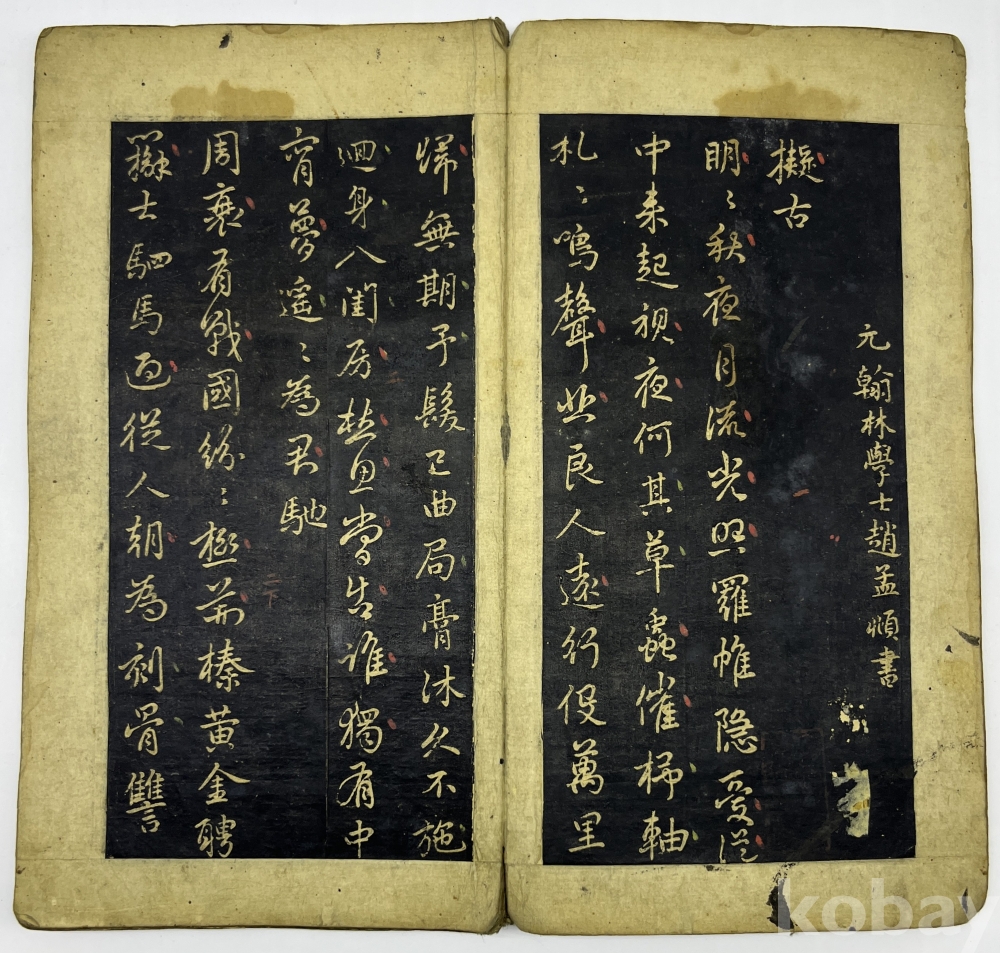 元翰林學士趙孟頫書
擬古
明〻秋夜月流光照羅帷隱憂從
中来起視夜何其草蟲催杼軸
札〻鳴聲悲良人遠行役萬里
歸無期予髮已曲局膏沐久不施
迴身入閨房愁思當告誰獨有中
宵夢遥〻為君馳
周衰有戰國紛〻極荊榛黃金聘
士駟馬迎從人朝為刻骨讐
kobay